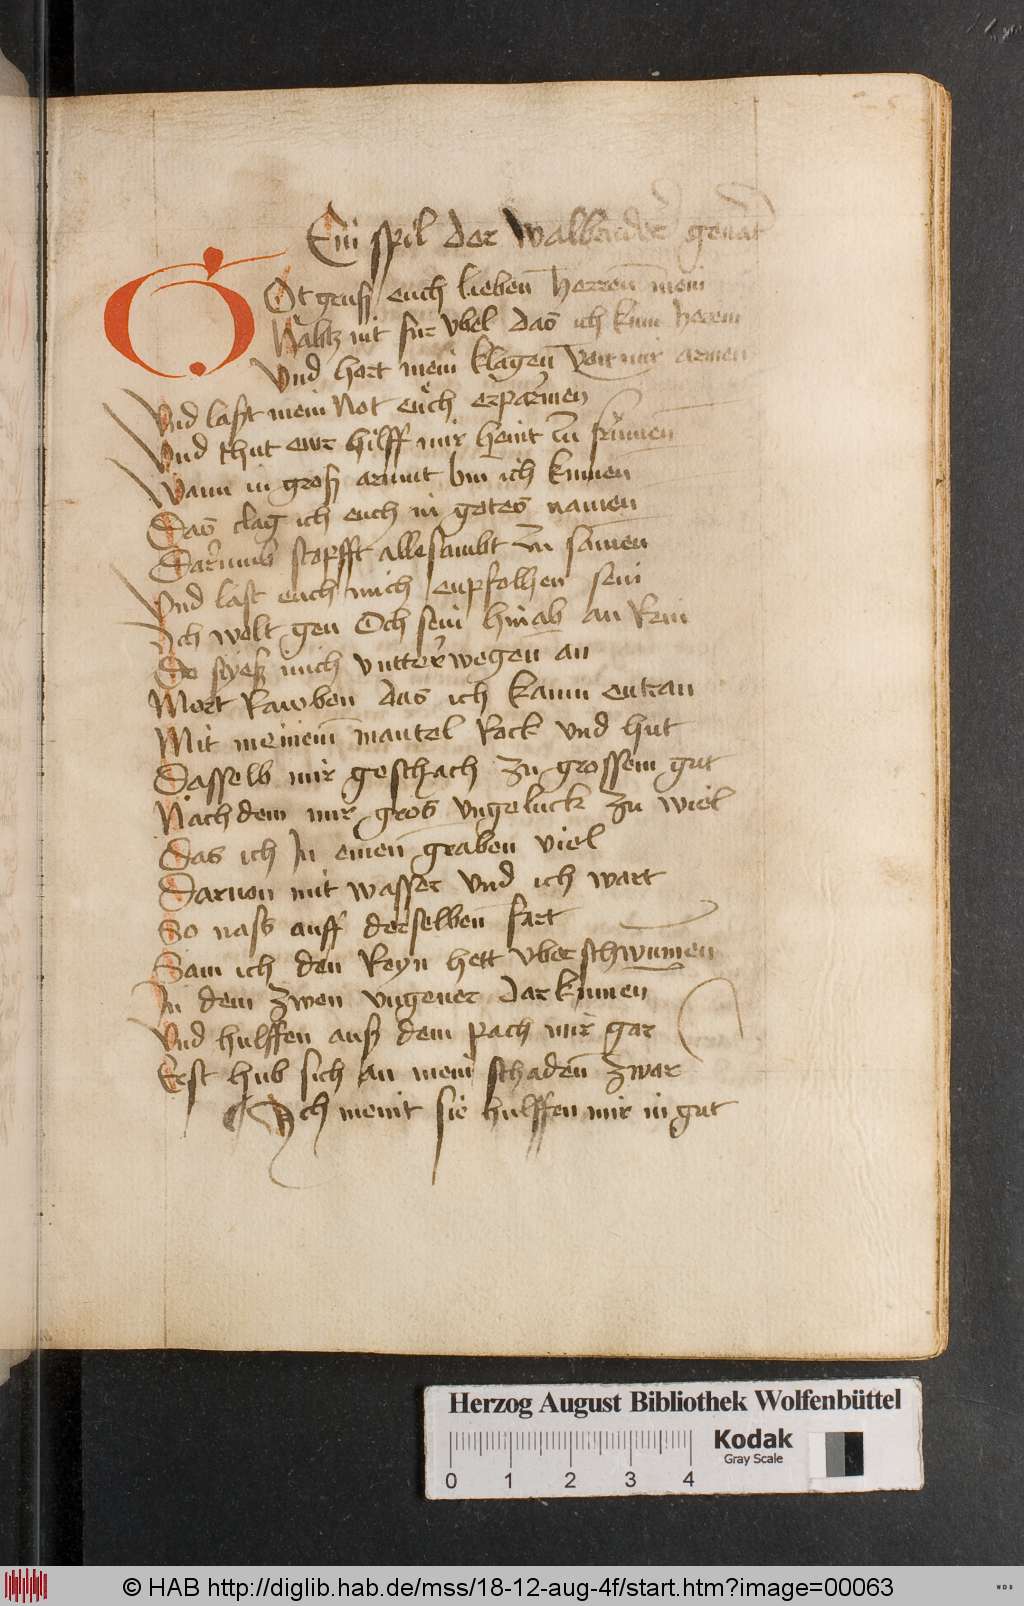 Ein spil der Walbruder genāt
GOt gruß euch lieben̄ herren̄ mein
Nabtz nit fur vbel das ich kum herein
Vnd hort mein klagen̄ von mir armen
Vnd laßt mein Not eúch erparmen
Vnd thut ewr hilff mir heint zu frumen
Wann in groß armut bin ich kumen
Das clag ich euch in gotes namen
Darumb stopfft allesambt zu samen
Vnd last euch mich enpfolhen sein
Ich wolt gen Och sein hinab an Rein
Do styeß mich vntterwegen an
Mort Rawben das ich kaum entran
Mit meinem̄ mantel Rock vnd hut
Dasselb mir geschach zu grossem gut
Nach dem mir gros vngeluck zu wiel
Das ich In einen̄ graben viel
Daruon mit wasser vnd ich wart
So nass auff derselben̄ fart
Sam ich den Reyn hett vberschwūmen
In dem zwen vngeuer dar kumen
Vnd hulffen auß dem pach mir gar
Erst hub sich an mein schaden̄ zwar
Ich meint sie hulffen mir in gut
Herzog August Bibliothek Wolfenbüttel
0 1 2 3 4
Kodak
Gray Scale
© HAB http://diglib.hab.de/mss/18-12-aug-4f/start.htm?image=00063